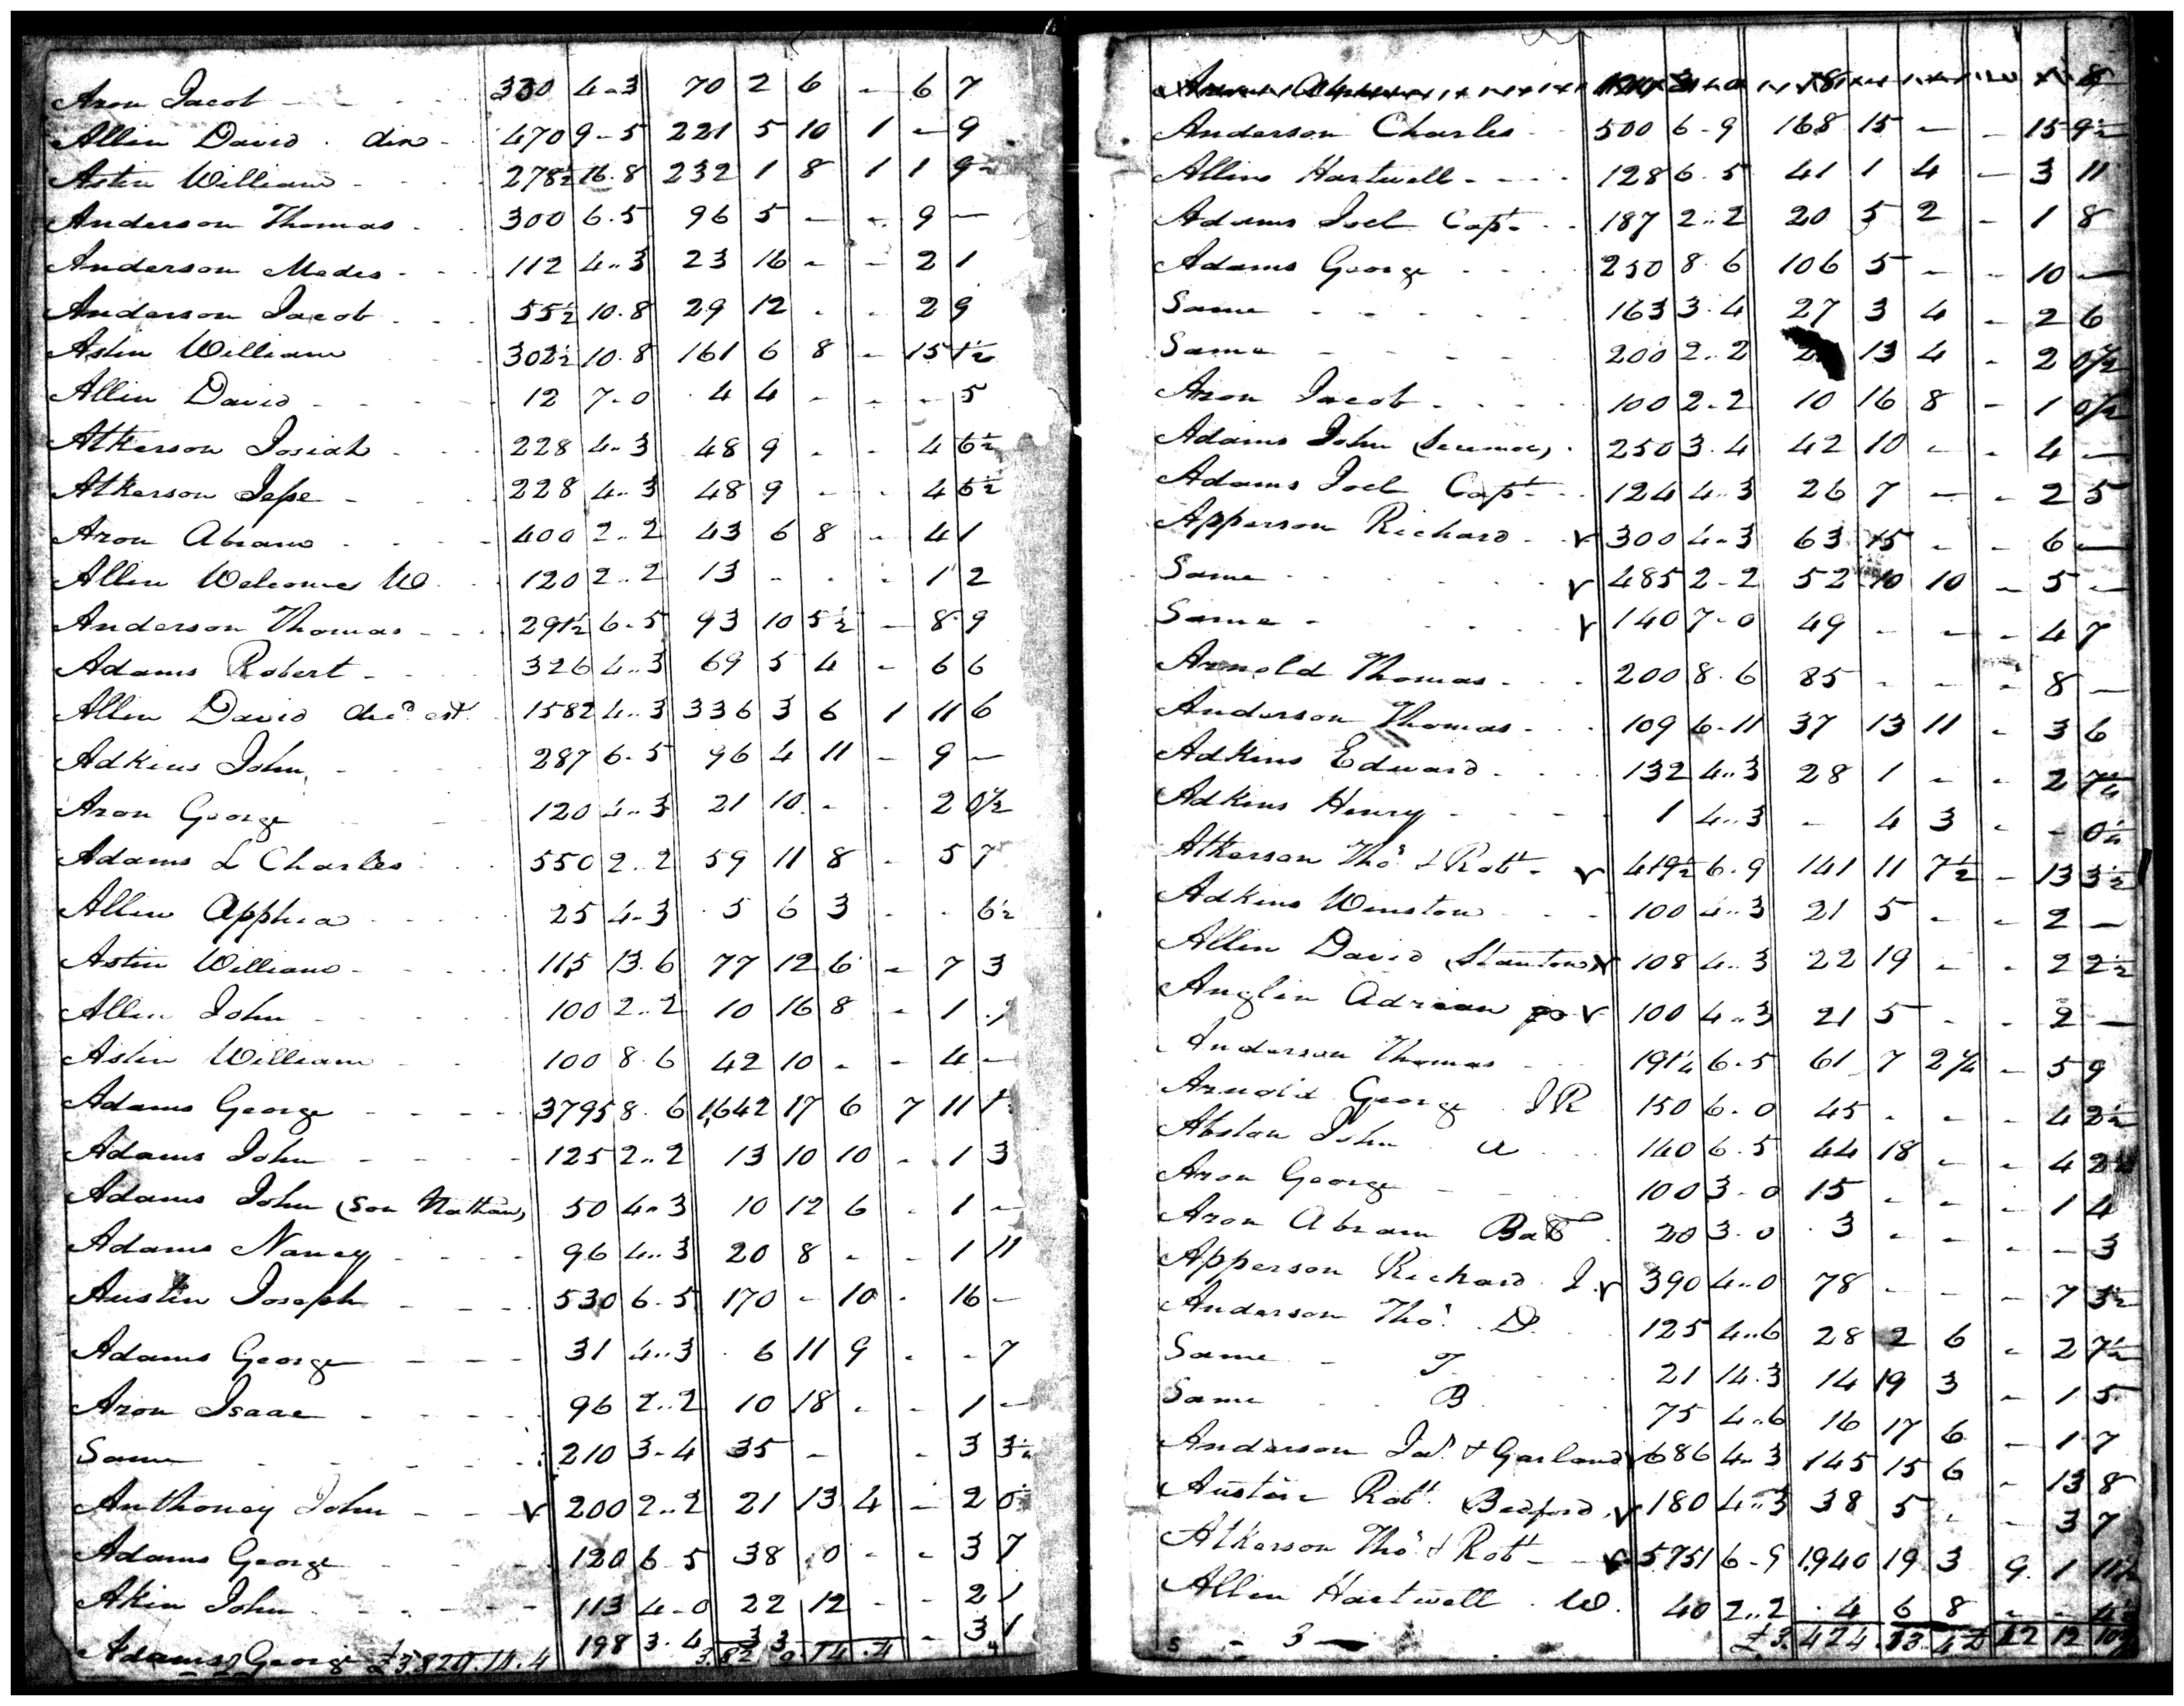 Aron Jacob 330 4..3 70 2 6 - 6 7
Allin David 470 9-5 221 5 10 1 - 9
Astin William 278½ 16.8 232 1 8 1 1 9
Anderson Thomas 300 6.5 96 5 - - 9 -
Anderson Medes 112 4..3 23 16 - - 2 1
Anderson Jacob 55½ 10.8 29 12 - - 2 9
Astin William 302½ 10.8 161 6 8 - 15 1½
Allin David 12 7-0 4 4 - - - 5
Atkerson Josiah 228 4..3 48 9 - - 4 6½
Atkerson Jesse 228 4..3 48 9 - - 4 6½
Aron Abram 400 2..2 43 6 8 - 4 1
Allin Welcome W 120 2..2 13 - - - 1 2
Anderson Thomas 291½ 6.5 93 10 5½ - 8 9
Adams Robert 326 4..3 69 5 4 - 6 6
Allin David decd. est. 1582 4..3 336 3 6 1 11 6
Adkins John 287 6.5 96 4 11 - 9 -
Aron George 120 4..3 21 10 - - 2 0½
Adams L Charles 550 2..2 59 11 8 - 5 7
Allin Apphia 25 4.3 5 6 3 - - 6½
Astin William 115 13.6 77 12 6 - 7 3
Allin John 100 2..2 10 16 8 - 1
Astin William 100 8.6 42 10 - - 4 -
Adams George 3795 8.6 1,642 17 6 7 11 1
Adams John 125 2..2 13 10 10 - 1 3
Adams John (son Nathan) 50 4..3 10 12 6 - 1 -
Adams Nancy 96 4..3 20 8 - - 1 11
Austin Joseph 530 6.5 170 - 10 - 16 -
Adams George 31 4..3 6 11 9 - - 7
Aron Isaac 96 2..2 10 18 - - 1 -
Same 210 3-4 35 - - 3 3½
Anthoney John v 200 2..2 21 13 4 - 2 0
Adams George 120 6.5 38 10 - - 3 7
Akin John 113 4-0 22 12 - - 2 1
Adams George £3,820.14.4 198 3.4 33 - 3 1
3,820.14.4
Anderson Charles 500 6-9 168 15 - - 15 9½
Allins Hartwell 128 6.5 41 1 4 - 3 11
Adams Joel Capt. 187 2..2 20 5 2 - 1 8
Adams George 250 8.6 106 5 - - 10 -
Same 163 3.4 27 3 4 - 2 6
Same 200 2..2 13 4 - 2 0½
Aron Jacob 100 2-2 10 16 8 - 1 0½
Adams John 250 3.4 42 10 - - 4 -
Adams Joel Capt. 124 4..3 26 7 - - 2 5
Apperson Richard v 300 4..3 63 15 - - 6 -
Same v 485 2-2 52 10 10 - 5 -
Same v 140 7-0 49 - - - 4 7
Arnold Thomas 200 8.6 85 - - - 8 -
Anderson Thomas 109 6-11 37 13 11 - 3 6
Adkins Edward 132 4..3 28 1 - - 2 7¼
Adkins Henry 1 4..3 - 4 3 - - 0¼
Atkerson Tho.s & Robt. v 419½ 6.9 141 11 7½ - 13 3½
Adkins Winston 100 4..3 21 5 - - 2 -
Allin David (Staunton) v 108 4..3 22 19 - - 2 2½
Anglin Adrian v 100 4..3 21 5 - - 2 -
Anderson Thomas 191¼ 6.5 61 7 2¼ - 5 9
Arnold George JR 150 6.0 45 - - - 4 2½
Abston John a 140 6.5 44 18 - - 4 2
Aron George 100 3-0 15 - - - 1 4
Aron Abram 20 3.0 3 - - - - 3
Apperson Richard J. v 390 4..0 78 - - - 7 3½
Anderson Tho.s D. 125 4..6 28 2 6 - 2 7½
Same T 21 14.3 14 19 3 - 1 5
Same B 75 4..6 16 17 6 - 1 7
Anderson Ja.s & Garland v 686 4..3 145 15 6 - 13 8
Austin Robt. Bedford v 180 4..3 38 5 - - 3 7
Atkerson Tho.s & Robt v 5751 6-9 1,940 19 3 9 1 11½
Allin Hartwell W. 40 2..2 4 6 8 - - 4½
5 - 3 - £3,424.13.4 £22 12 10